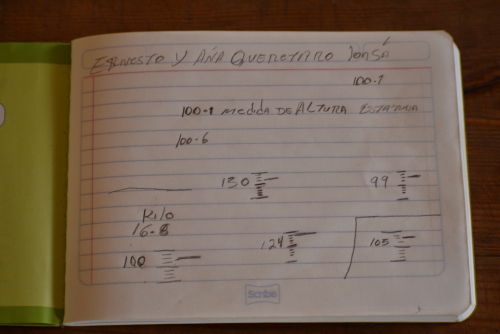 ERNESTO Y AÑA QUERETARO
100.1
100.1 MEDIDA DE ALTURA ESTATURA
100.6
130
99
Kilo
16.8
124
105
100
Scribe